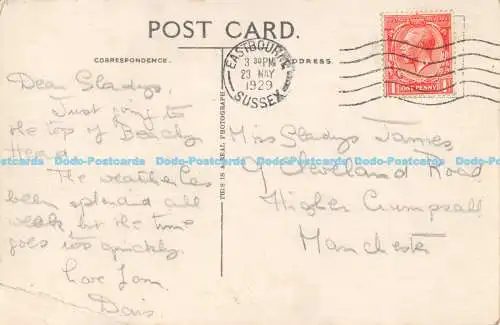 POST CARD.
CORRESPONDENCE.
ADDRESS.
EASTBOURNE
3 30 PM
23 MAY
1929
SUSSEX
ONE PENNY
THIS IS A REAL PHOTOGRAPH
Dear Gladys,
Just going to
the top of Beachy
Head.
The weather has
been splendid all
week but the time
goes too quickly.
Love from
Doris
Miss Gladys James
9 Cleveland Road
Higher Crumpsall
Manchester
Dodo-Postcards Dodo-Postcards Dodo-Postcards Dodo-Postcards Dodo-Postcards Dodo-Postcards